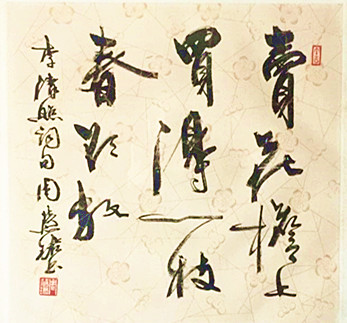 賣花擔上
買得一枝
春欲放
李清照詞句周慧珺